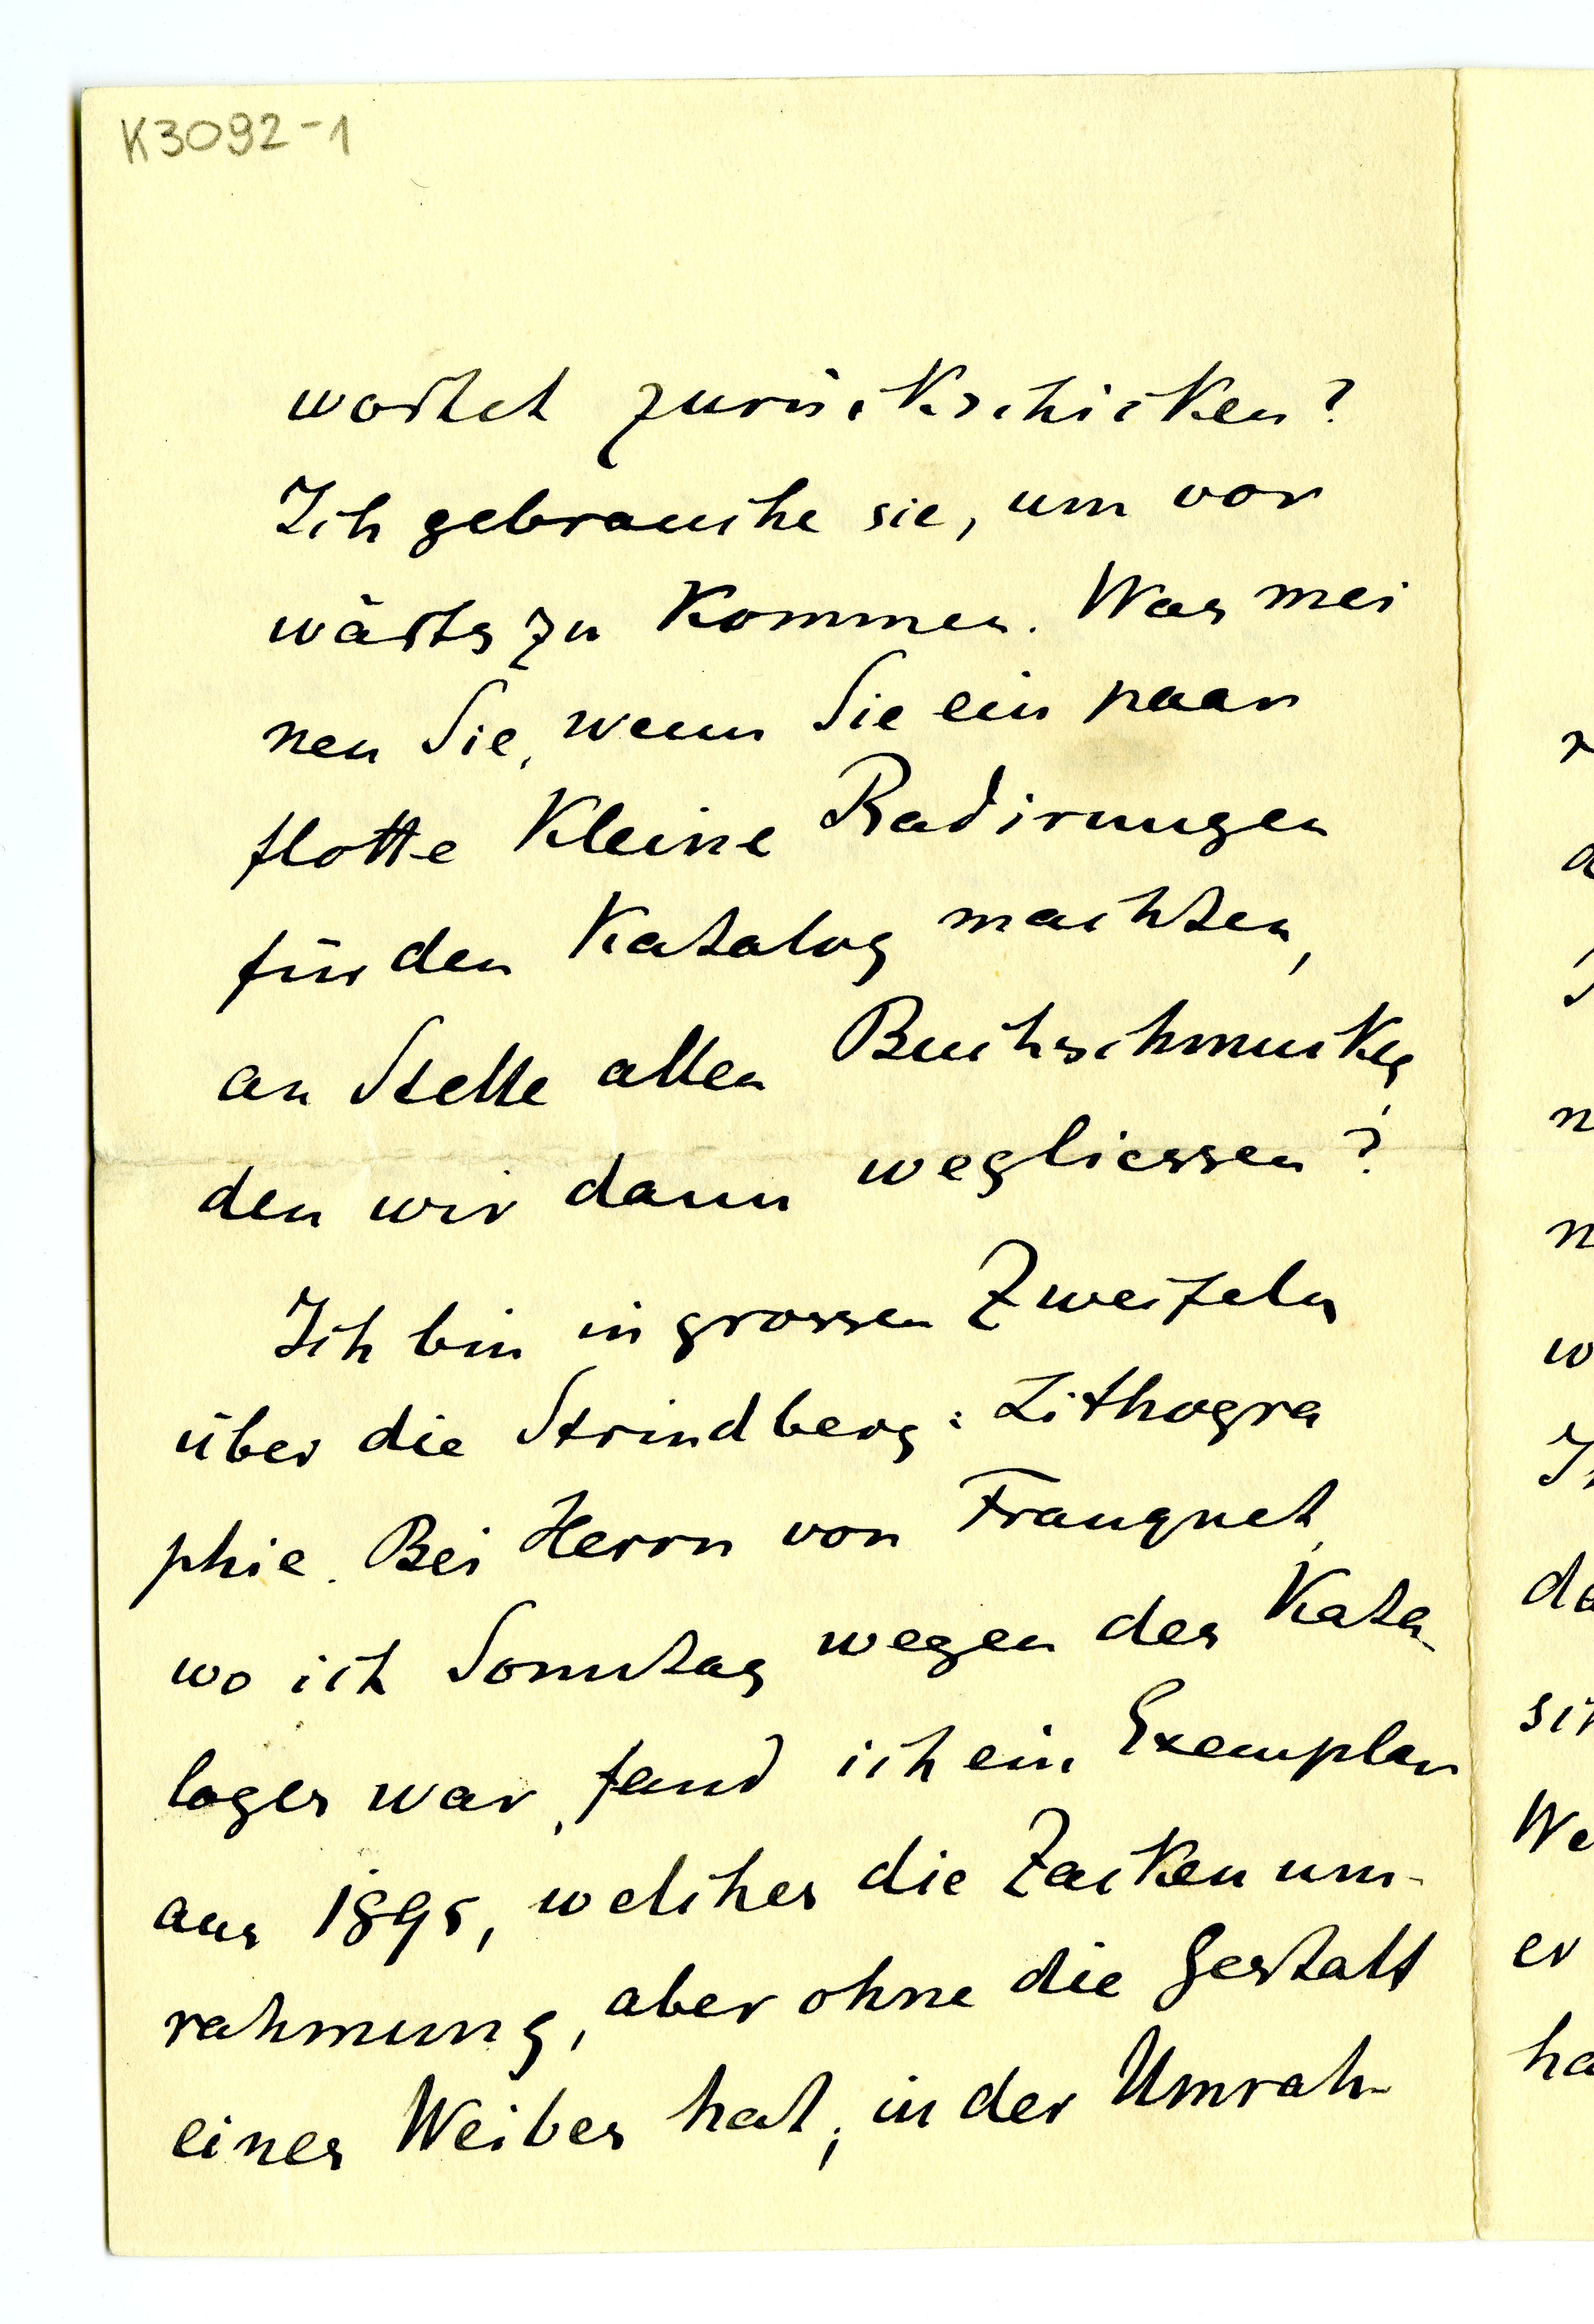 K3092-1
wortet zurückschicken?
Ich gebrauche sie, um vor
wärts zu kommen. Was mei
nen Sie, wenn Sie ein paar
flotte kleine Radirungen
für den Katalog machten,
an Stelle allen Buchschmucks,
den wir dann wegliessen?
Ich bin in grossen Zweifeln
über die Strindberg: Lithogra
phie. Bei Herrn von Franquet,
wo ich Sonntag wegen des Kata-
loges war, fand ich ein Exemplar
aus 1895, welches die Zacken um-
rahmung, aber ohne die Gestalt
eines Weibes hat; in der Umrah-